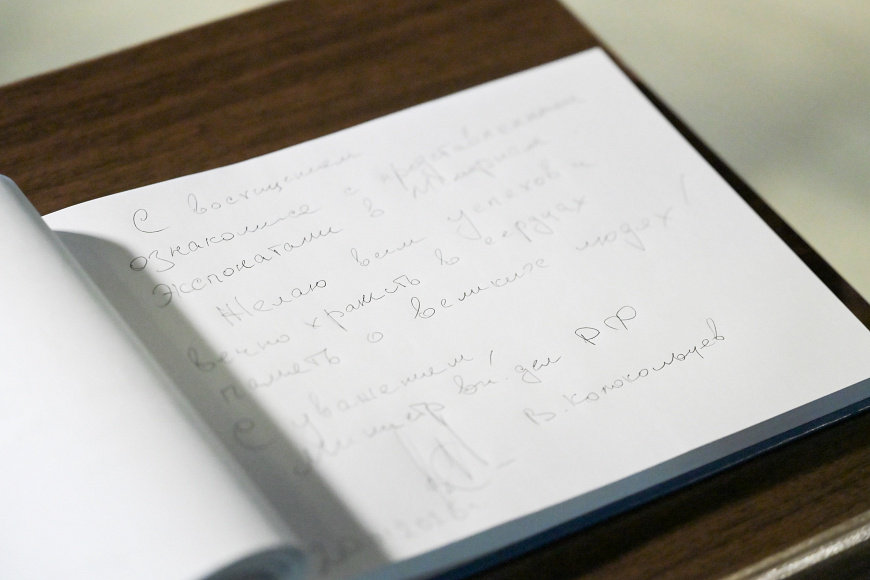 С восхищением
ознакомился с представленными
экспонатами в Мемориале
Желаю вам успехов и
вечно хранить в сердцах
память о великих людях!
С уважением,
Министр вн. дел РФ
В. Колокольцев